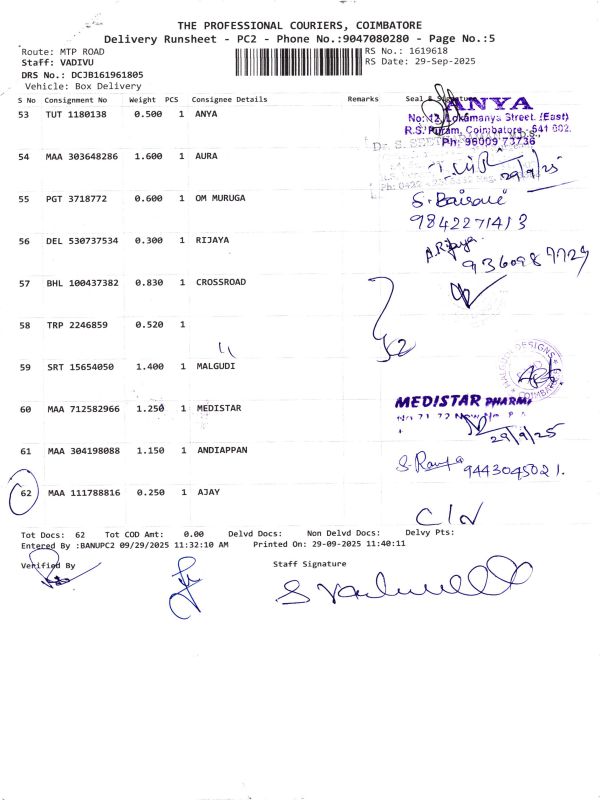 THE PROFESSIONAL COURIERS, COIMBATORE
Delivery Runsheet - PC2 - Phone No.:9047080280 - Page No.:5
Route: MTP ROAD
RS No.: 1619618
Staff: VADIVU
RS Date: 29-Sep-2025
DRS No.: DCJB161961805
Vehicle: Box Delivery
S No Consignment No Weight PCS Consignee Details Remarks Seal & Signature
53 TUT 1180138 0.500 1 ANYA
ANYA
No: 12, Lokamanya Street, (East)
R.S. Puram, Coimbatore - 641 002.
Ph: 96009 73736
54 MAA 303648286 1.600 1 AURA
29/9/25
55 PGT 3718772 0.600 1 OM MURUGA
9842271413
56 DEL 530737534 0.300 1 RIJAYA
A.Rijaya
9360987729
57 BHL 100437382 0.830 1 CROSSROAD
58 TRP 2246859 0.520 1
59 SRT 15654050 1.400 1 MALGUDI
60 MAA 712582966 1.250 1 MEDISTAR
MEDISTAR PHARMA
29/9/25
61 MAA 304198088 1.150 1 ANDIAPPAN
9443045021.
62 MAA 111788816 0.250 1 AJAY
Tot Docs: 62 Tot COD Amt: 0.00 Delvd Docs: Non Delvd Docs: Delvy Pts:
Entered By :BANUPC2 09/29/2025 11:32:10 AM Printed On: 29-09-2025 11:40:11
Verified By
Staff Signature